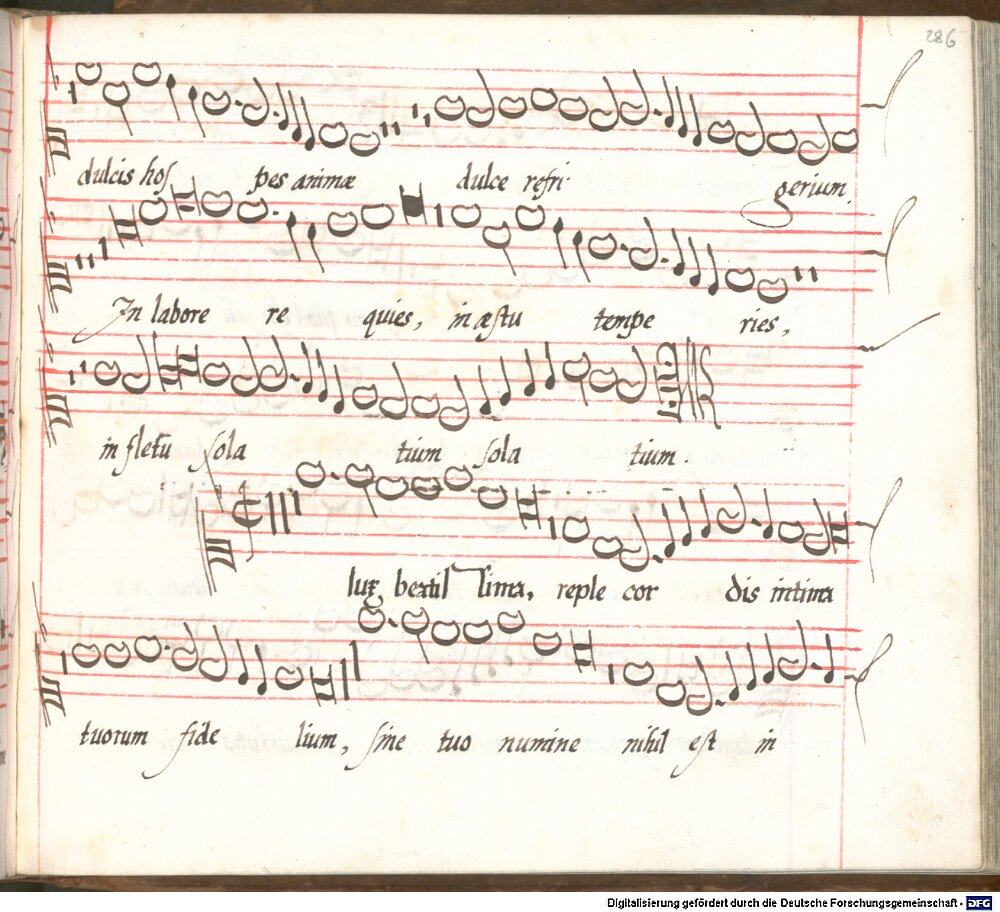 286
dulcis hos pes animæ dulce refri gerium.
In labore re quies, in æstu tempe ries,
in fletū sola tium sola tium.
lux beatis sima, reple cor dis intima
tuorum fide lium, sine tuo numine nihil est in
Digitalisierung gefördert durch die Deutsche Forschungsgemeinschaft - DFG